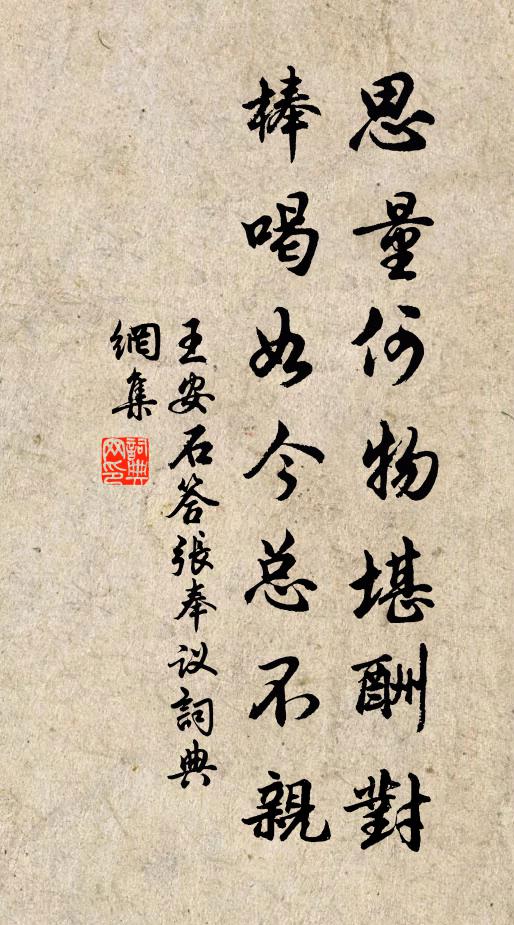 思量何物堪酬對
棒喝如今总不親
王安石答張奉议詞典
網集
詞典網印